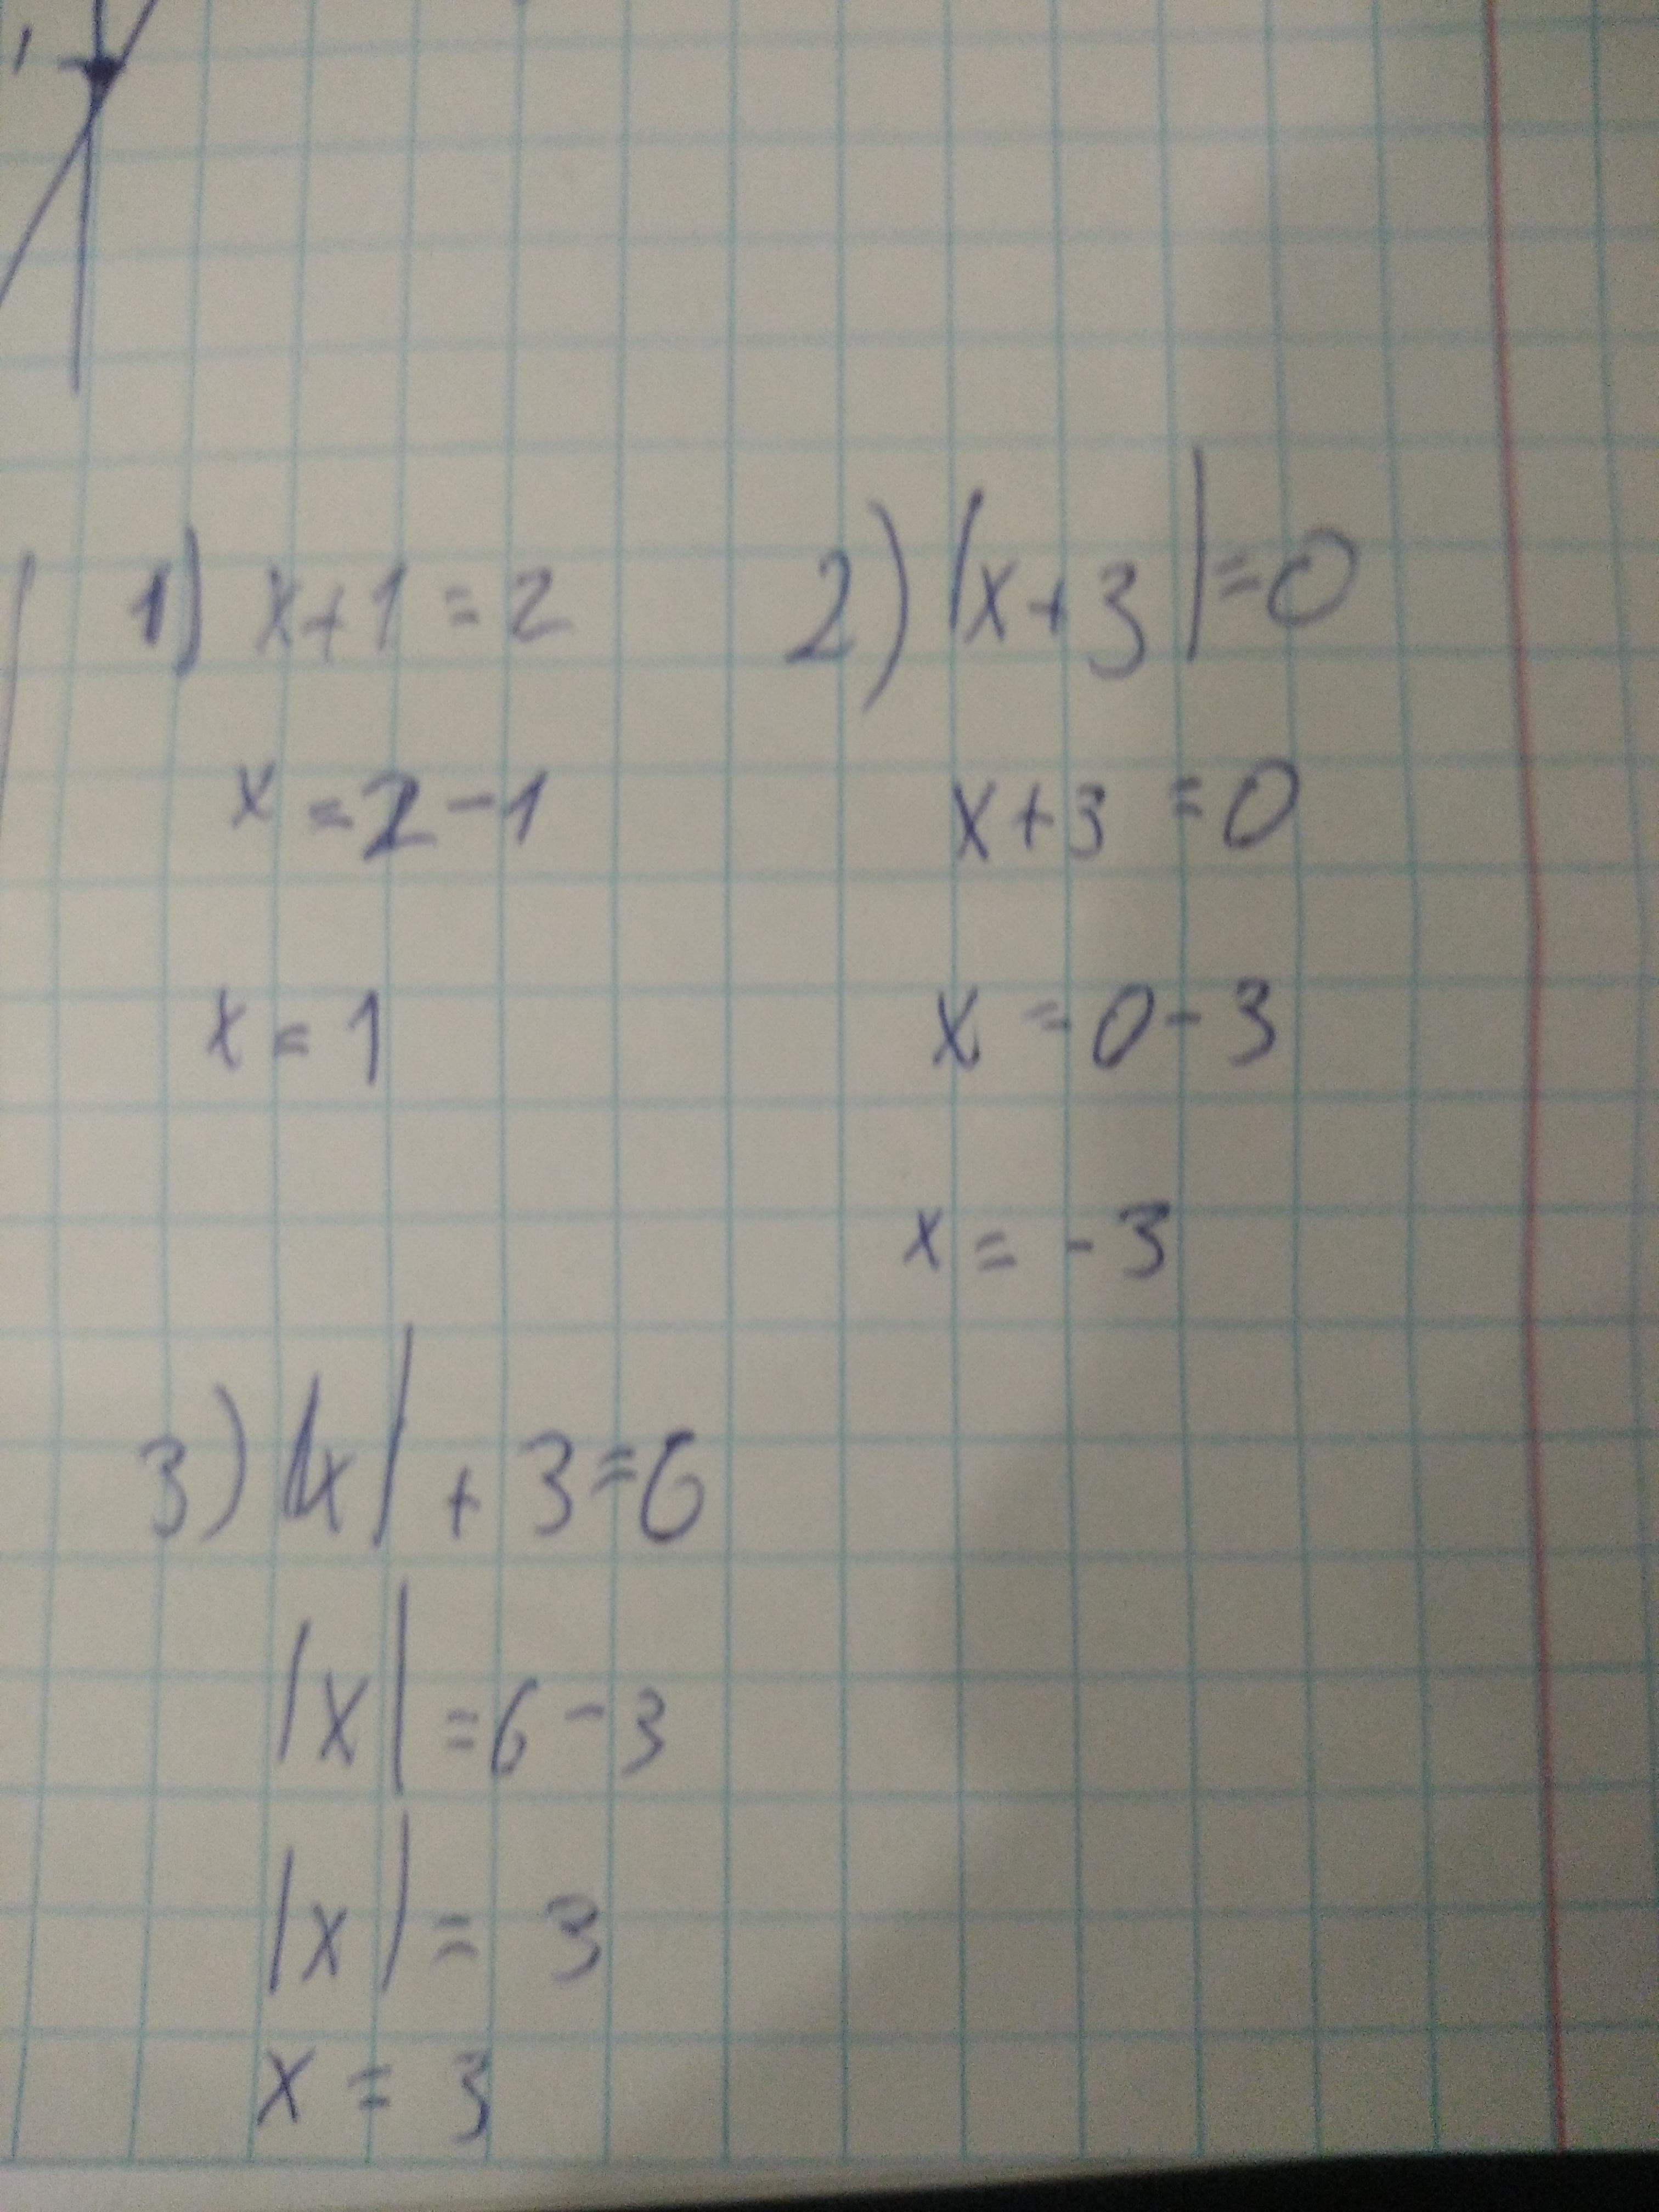 1) x+1=2
x=2-1
x=1
2) |x+3|=0
x+3=0
x=0-3
x=-3
3) |x|+3=6
|x|=6-3
|x|=3
x=3